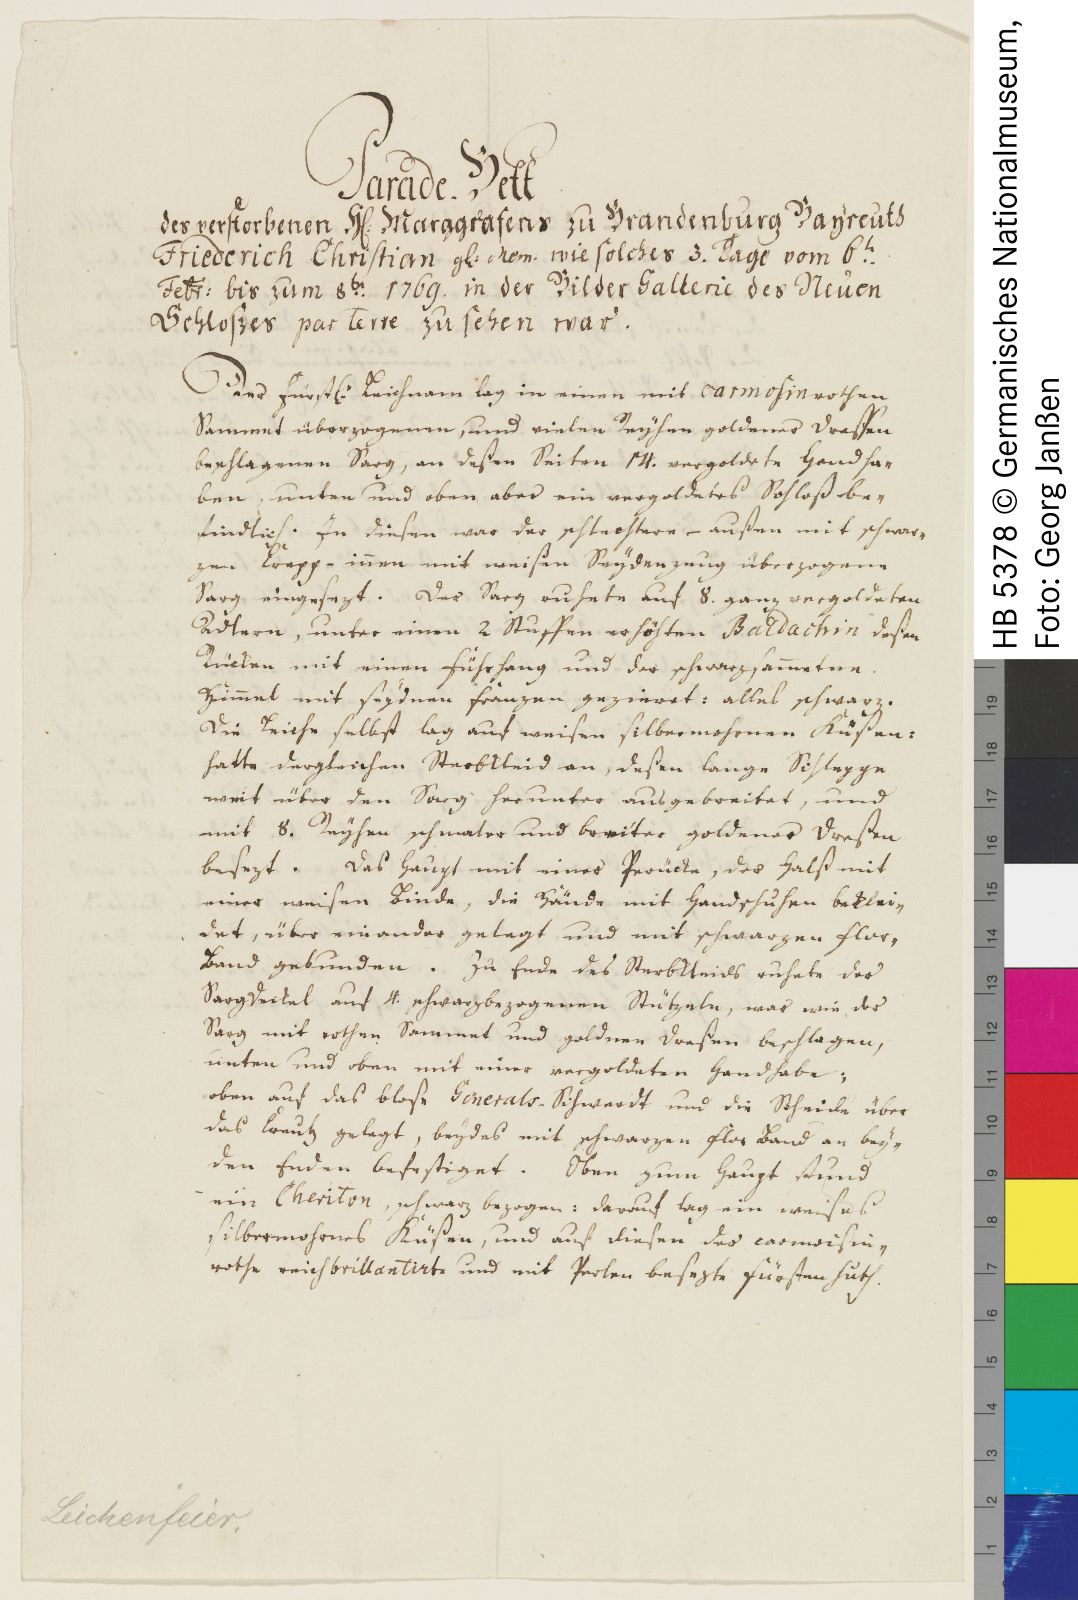 Parade-Bett
des verstorbenen H. Marggrafens zu Brandenburg Bayreuth
Friederich Christian gl: Mem. wie solches 3. Tage vom 6ten.
Febr: bis zum 8ten. 1769. in der Bilder Gallerie des Neuen
Schloßes par terre zu sehen war.
Der Fürstl: Leichnam lag in einen mit carmosin rothen
Sammet überzogenen, und vielen Reyhen goldener Dressen
beschlagenen Sarg, an deßen Seiten 14. vergoldete Handha-
ben, unten und oben aber ein vergoldetes Schloß be-
findlich. In diesen war der schlechtere - außen mit schwar-
zen Crepp - innen mit weisen Seydenzeug überzogene
Sarg eingesezt. Der Sarg ruhete auf 8. ganz vergoldeten
Adlern, unter einen 2 Stuffen erhöhten Baldachin deßen
Rücken mit einen Führhang und der schwarzsam̅etne
Him̅el mit seydnen Franzen gezieret: alles schwarz.
Die Leiche selbst lag auf weisen silbermohrnen Küßen:
hatte dergleichen Sterbkleid an, deßen lange Schleppe
weit über den Sarg herunter ausgebreitet, und
mit 8. Reyhen schmaler und breiter goldener Dreßen
besezt. Das Haupt mit einer Perücke, der Halß mit
einer weisen Binde, die Hände mit Handschuhen beklei-
det, über einander gelegt und mit schwarzen Flor-
Band gebunden. Zu Ende des Sterbkleids ruhete der
SargDeckel auf 4. schwarzbezogenen Stützeln, war wie der
Sarg mit rothen Sammet und goldnen Dreßen beschlagen,
unten und oben mit einer vergoldeten Handhabe;
oben auf das blose Generals-Schwerdt und die Scheide über
das Creutz gelegt, beydes mit schwarzen Flor Band an bey-
den Enden befestiget. Oben zum Haupt stund
ein Cheriton, schwarz bezogen: darauf lag ein weises
silbermohrnes Küßen, und auf diesen der carmoisin-
rothe reich brillantirte und mit Perlen besezte Fürstenhuth.
Leichenfeier.
HB 5378 © Germanisches Nationalmuseum,
Foto: Georg Janßen
1 2 3 4 5 6 7 8 9 10 11 12 13 14 15 16 17 18 19